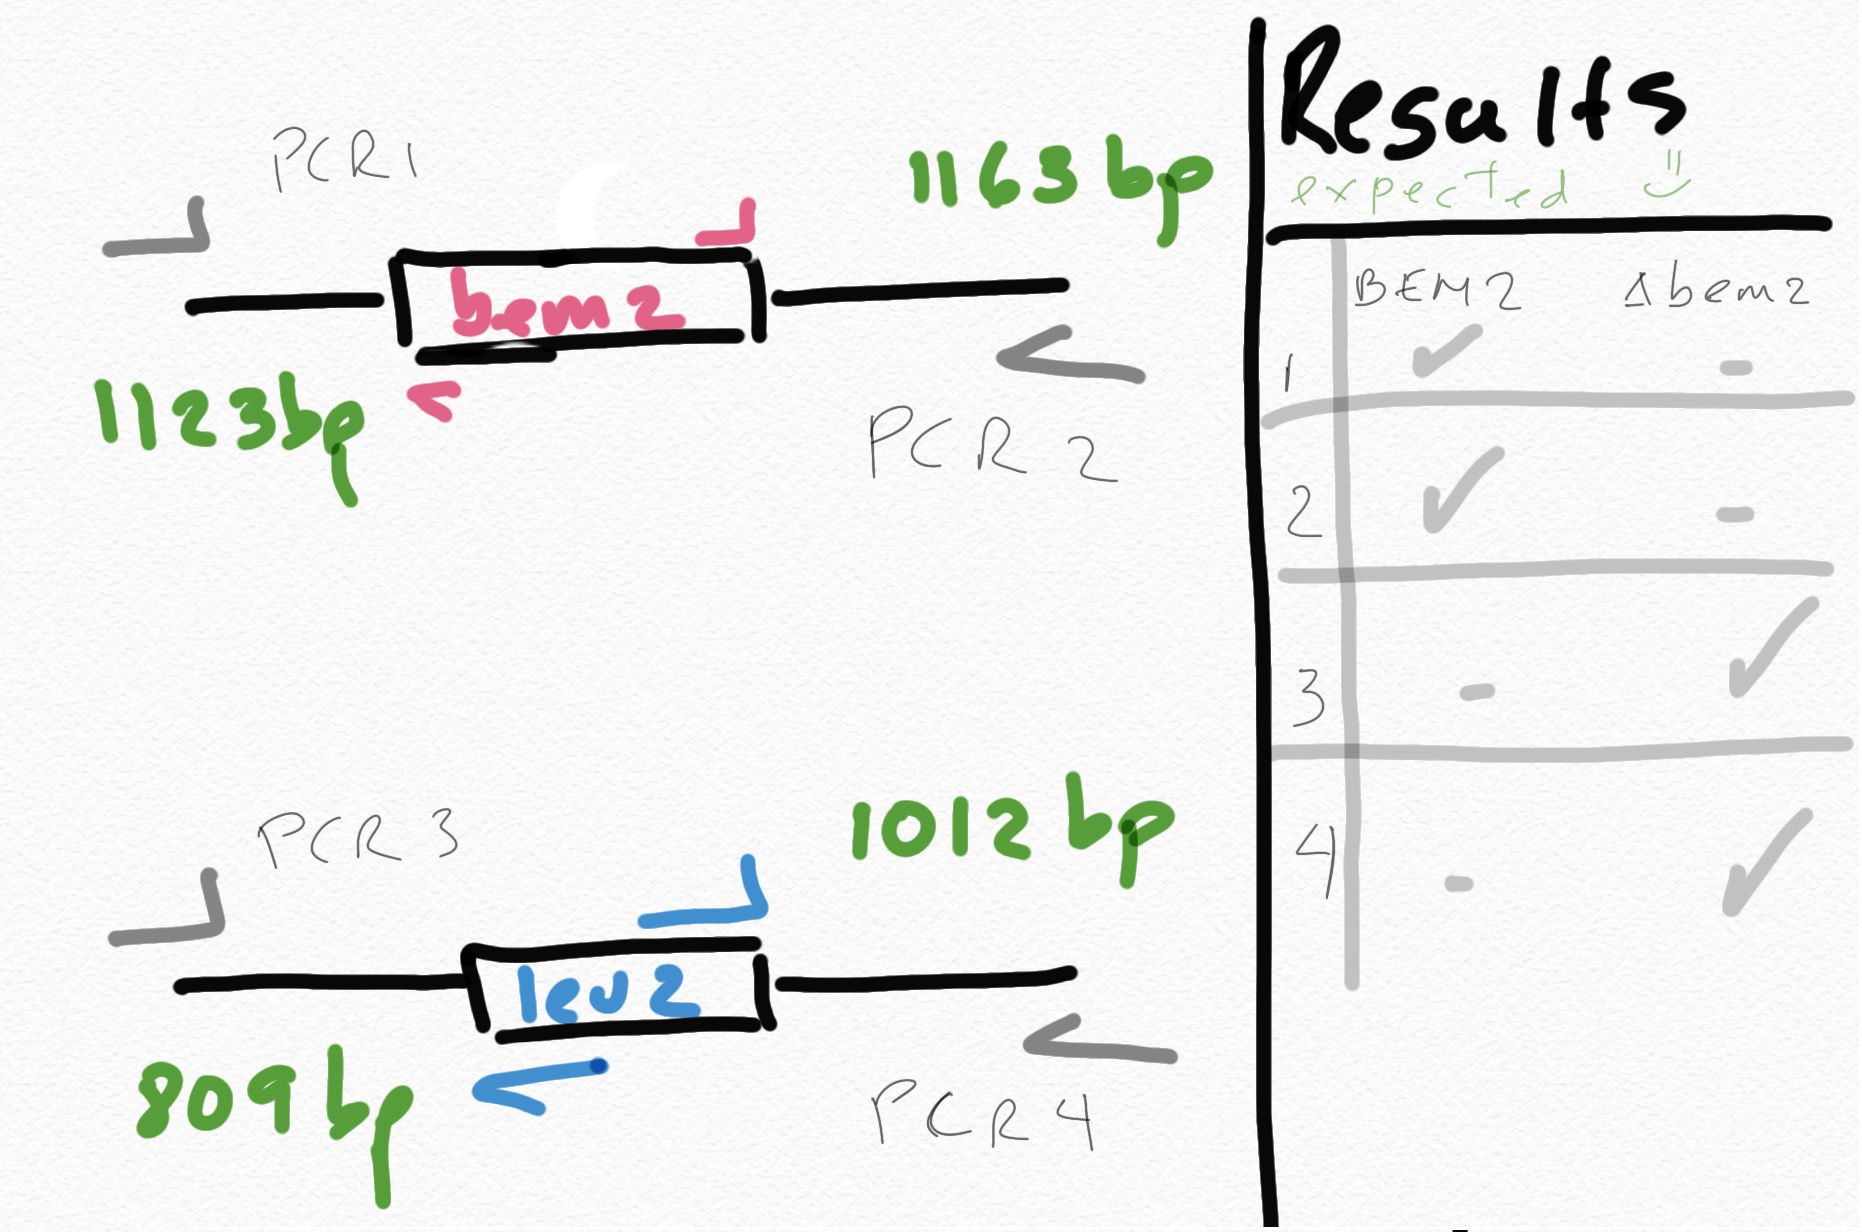 PCR1
1163 bp
bem2
1123bp
PCR 2
PCR 3
1012 bp
leu2
809 bp
PCR4
Results
expected
BEM2 Δbem2
1 ✓ -
2 ✓ -
3 - ✓
4 - ✓